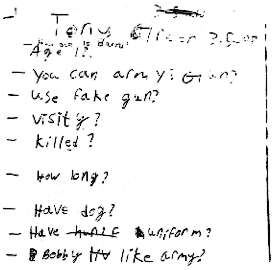 - You can army? Gun?
- use fake gun?
- visity?
- killed?
- How long?
- Have dog?
- Have uniform?
- Bobby like army?